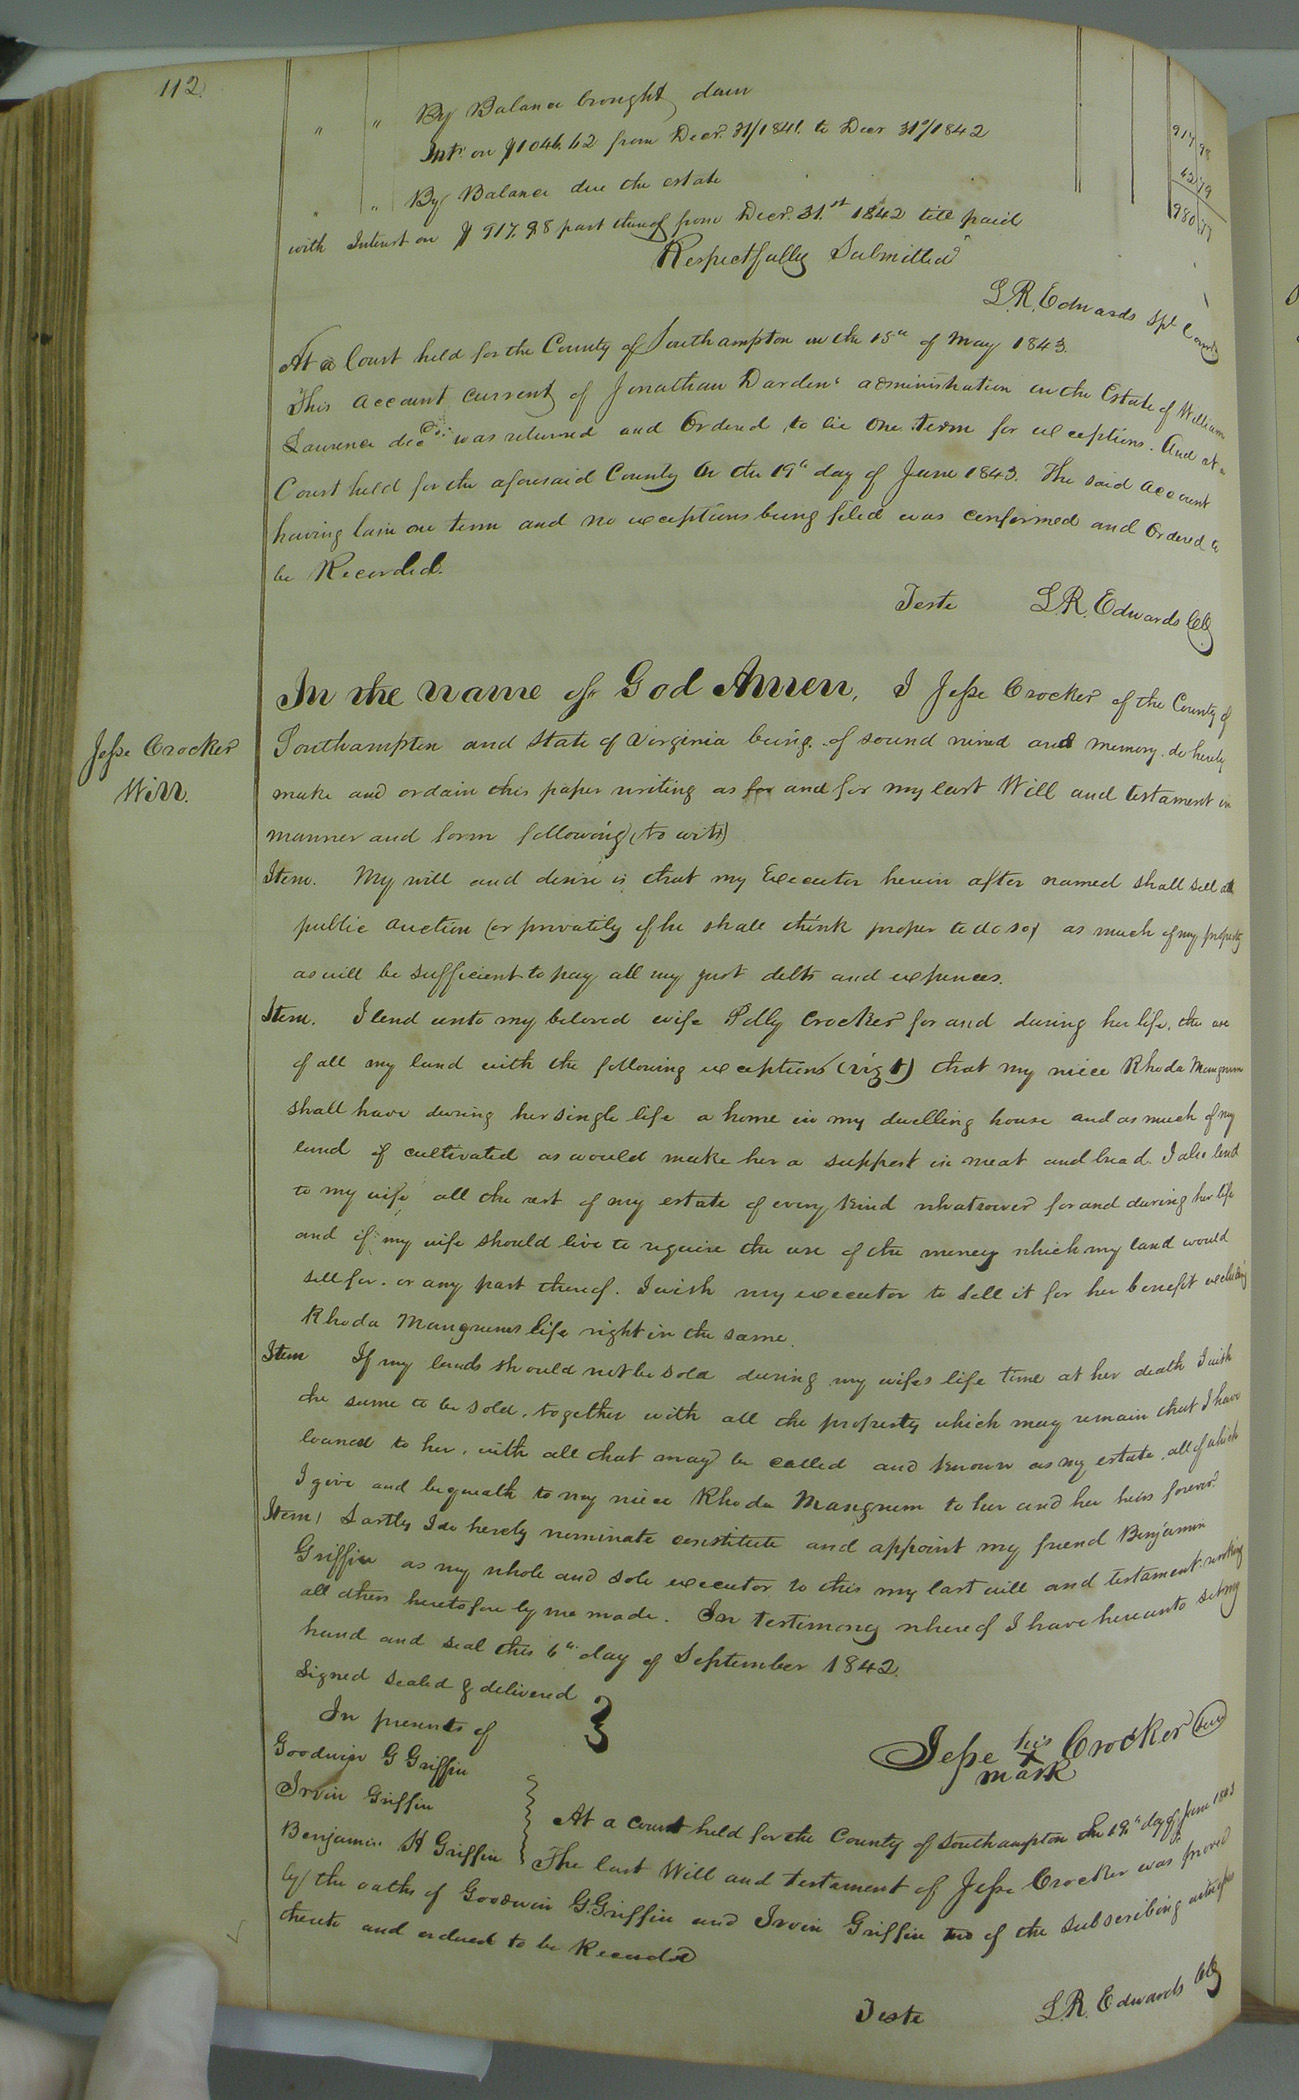 112.
" " By Balance brought down 917 98
Intr. on $1046.62 from Decr. 31/1841. to Decr 31st/1842 62 79
" " By Balance due the estate 980 77
with Interest on $917.98 part thereof from Decr. 31.st 1842 till paid
Respectfully Submitted
L.R. Edwards Spl Comr
At a Court held for the County of Southampton on the 15th of May 1843.
This account current of Jonathan Darden's administration on the Estate of William
Lawrence decd. was returned and Ordered to lie one term for exceptions. And at a
Court held for the aforesaid County On the 19th day of June 1843. The said account
having lain one term and no exceptions being filed was confirmed and Ordered to
be Recorded.
Teste L.R. Edwards CC
Jesse Crocker
Will.
In the name of God Amen, I Jesse Crocker of the County of
Southampton and State of Virginia being of sound mind and memory do hereby
make and ordain this paper writing as for and for my last Will and testament in
manner and form following (to wit)
Item. My will and desire is that my Executor herein after named shall sell at
public auction (or privately if he shall think proper to do so) as much of my property
as will be sufficient to pay all my just debts and expences.
Item. I lend unto my beloved wife Polly Crocker for and during her life, the use
of all my land with the following exceptions (vizt) that my niece Rhoda Mangrum
shall have during her single life a home in my dwelling house and as much of my
land if cultivated as would make her a support in meat and bread. I also lend
to my wife all the rest of my estate of every kind whatsoever for and during her life
and if my wife should live to require the use of the money which my land would
sell for. or any part thereof. I wish my executor to sell it for her benefit excluding
Rhoda Mangrums life right in the same.
Item If my lands should not be sold during my wifes life time at her death I wish
the same to be sold, together with all the property which may remain that I have
loaned to her, with all that may be called and known as my estate, all of which
I give and bequeath to my niece Rhoda Mangrum to her and her heirs forever.
Item, Lastly I do hereby nominate constitute and appoint my friend Benjamin
Griffin as my whole and sole executor to this my last will and testament revoking
all others heretofore by me made. In testimony whereof I have hereunto set my
hand and seal this 6th day of September 1842.
Signed sealed & delivered
In presents of
Jesse his X mark Crocker Seal
Goodwin G Griffin
Irvin Griffin
Benjamin H Griffin
At a court held for the County of Southampton the 19th day of June 1843
The last Will and testament of Jesse Crocker was proved
by the oaths of Goodwin G. Griffin and Irvin Griffin two of the subscribing witnesses
thereto and ordered to be Recorded
Teste L.R. Edwards CC